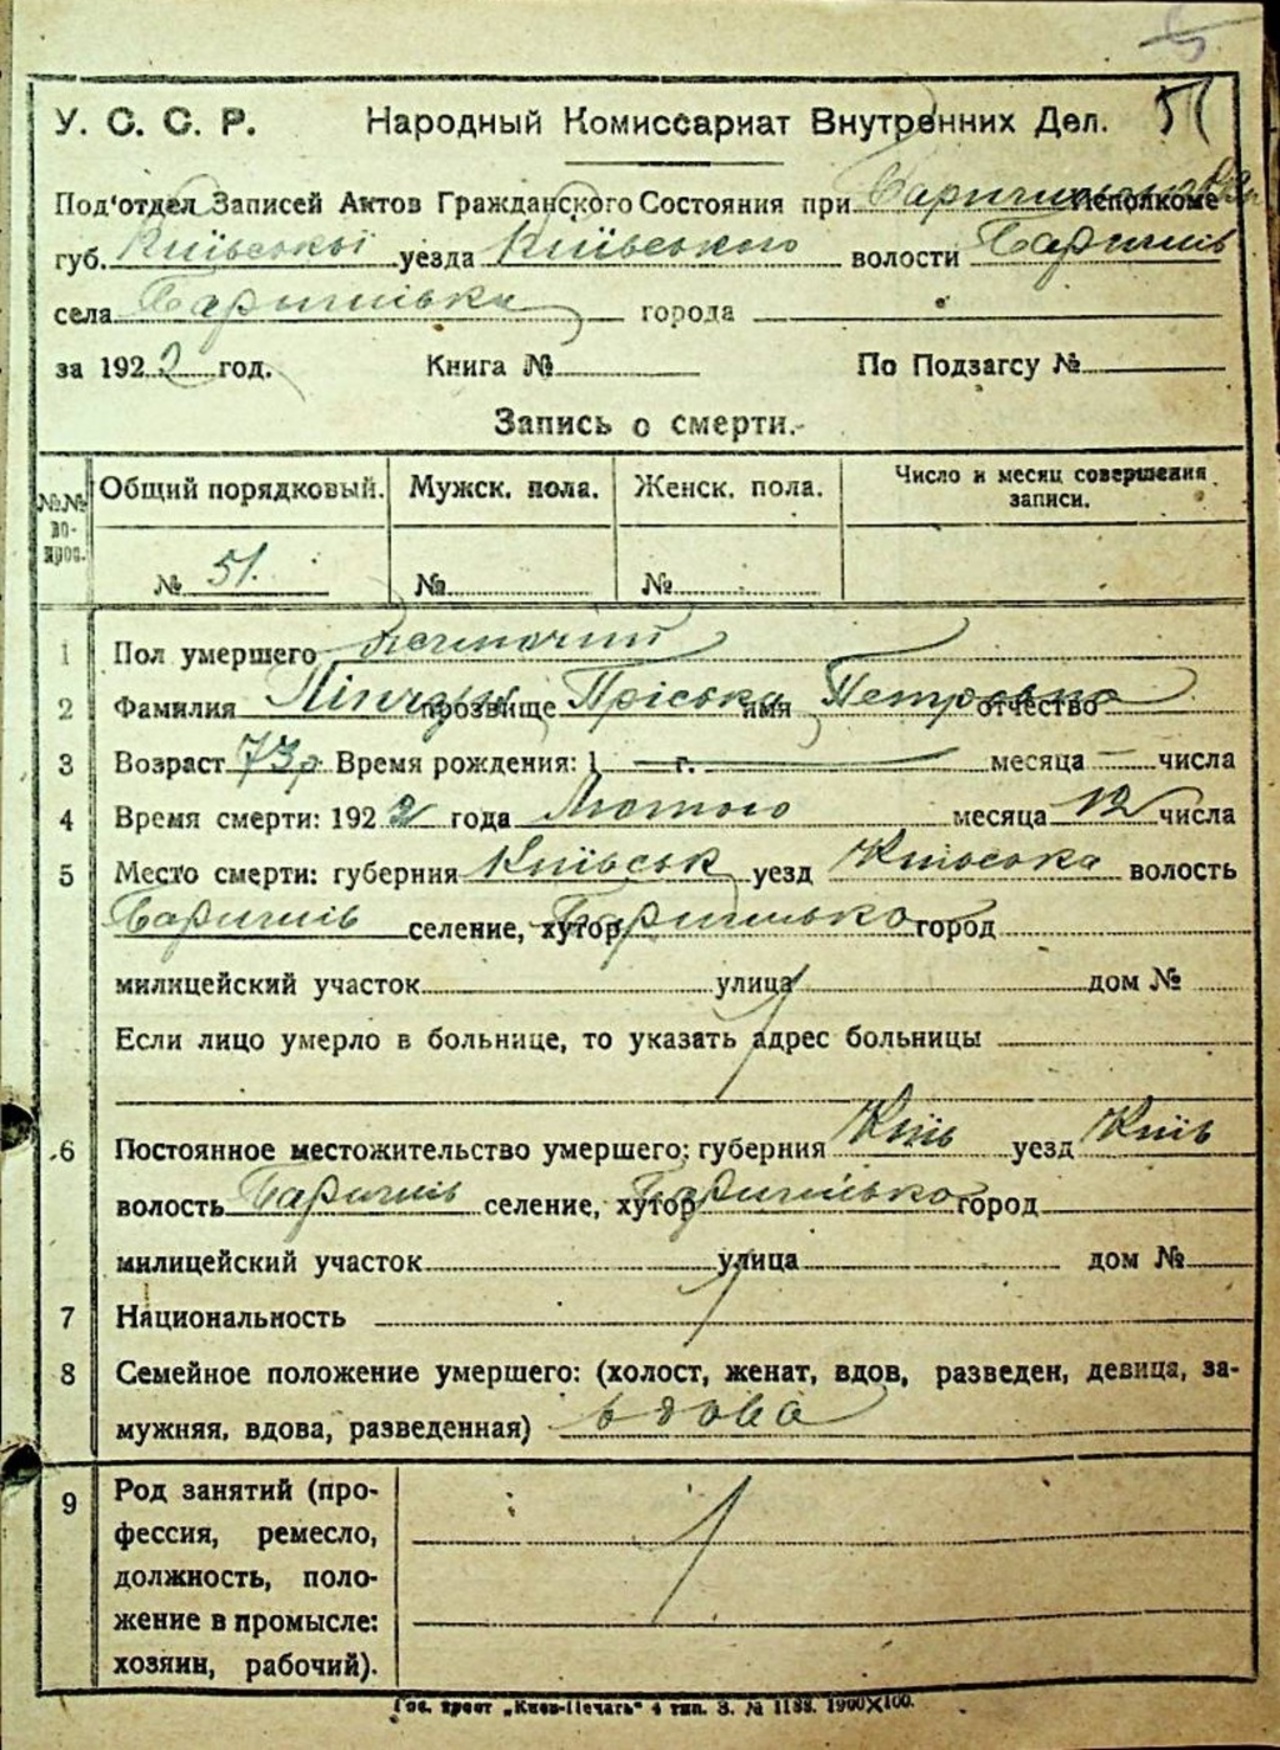 51
У. С. С. Р. Народный Комиссариат Внутренних Дел.
Под'отдел Записей Актов Гражданского Состояния при Исполкоме
губ. Київської уезда Київського волости Баришів
села Баришівка города
за 1922 год. Книга № По Подзагсу №
Запись о смерти.
№№ вопрос. Общий порядковый. Мужск. пола. Женск. пола. Число и месяц совершения записи.
№ 51. № №
1 Пол умершего
2 Фамилия прозвище Пріська имя Петровна отчество
3 Возраст 73 Время рождения: 1 — г. — месяца — числа
4 Время смерти: 1922 года Лютого месяца 12 числа
5 Место смерти: губерния Київськ уезд волость
Баришів селение, хутор Баришівка город
милицейский участок улица дом №
Если лицо умерло в больнице, то указать адрес больницы
6 Постоянное местожительство умершего: губерния Київ уезд Київ
волость Баришів селение, хутор Баришівка город
милицейский участок улица дом №
7 Национальность
8 Семейное положение умершего: (холост, женат, вдов, разведен, девица, за-
мужняя, вдова, разведенная) вдова
9 Род занятий (про-
фессия, ремесло,
должность, поло-
жение в промысле:
хозяин, рабочий).
Гос. трест „Киев-Печать“ 4 тип. З. № 1188. 1900×100.